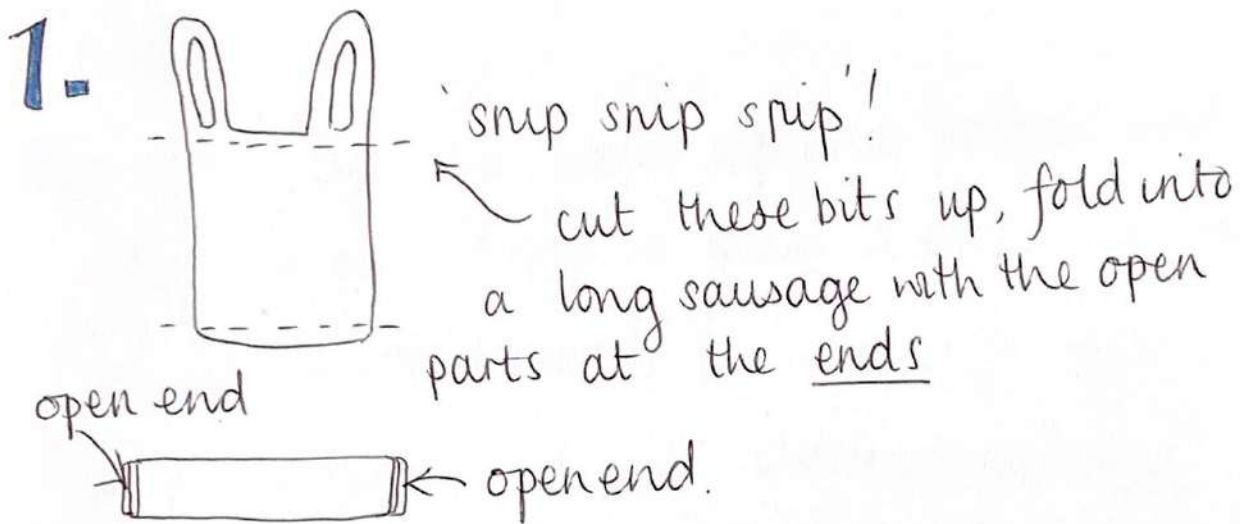 1.
'snip snip snip'!
cut these bits up, fold into
a long sausage with the open
parts at the ends
open end
open end.